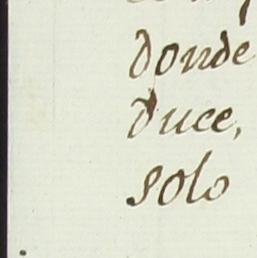 donde
duce,
solo